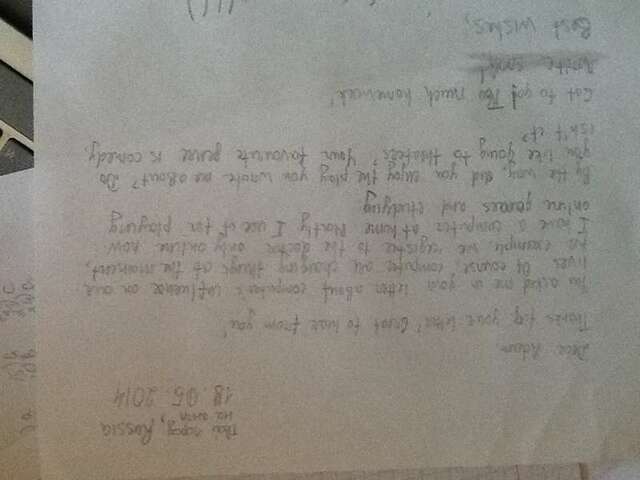 Твой город, Russia
на англ
18.05.2014
Dear Adam,
Thanks for your letter! Great to hear from you!
You asked me in your letter about computer's influence on our
lives. Of course, computer are changing things at the moment,
for example, we register to the doctor only online now.
I have a computer at home. Mostly I use it for playing
online games and studying
By the way, did you enjoy the play you wrote me about? Do
you like going to theaters? Your favourite genre is comedy,
isn't it?
Got to go! Too much homework!
Write soon!
Best wishes,